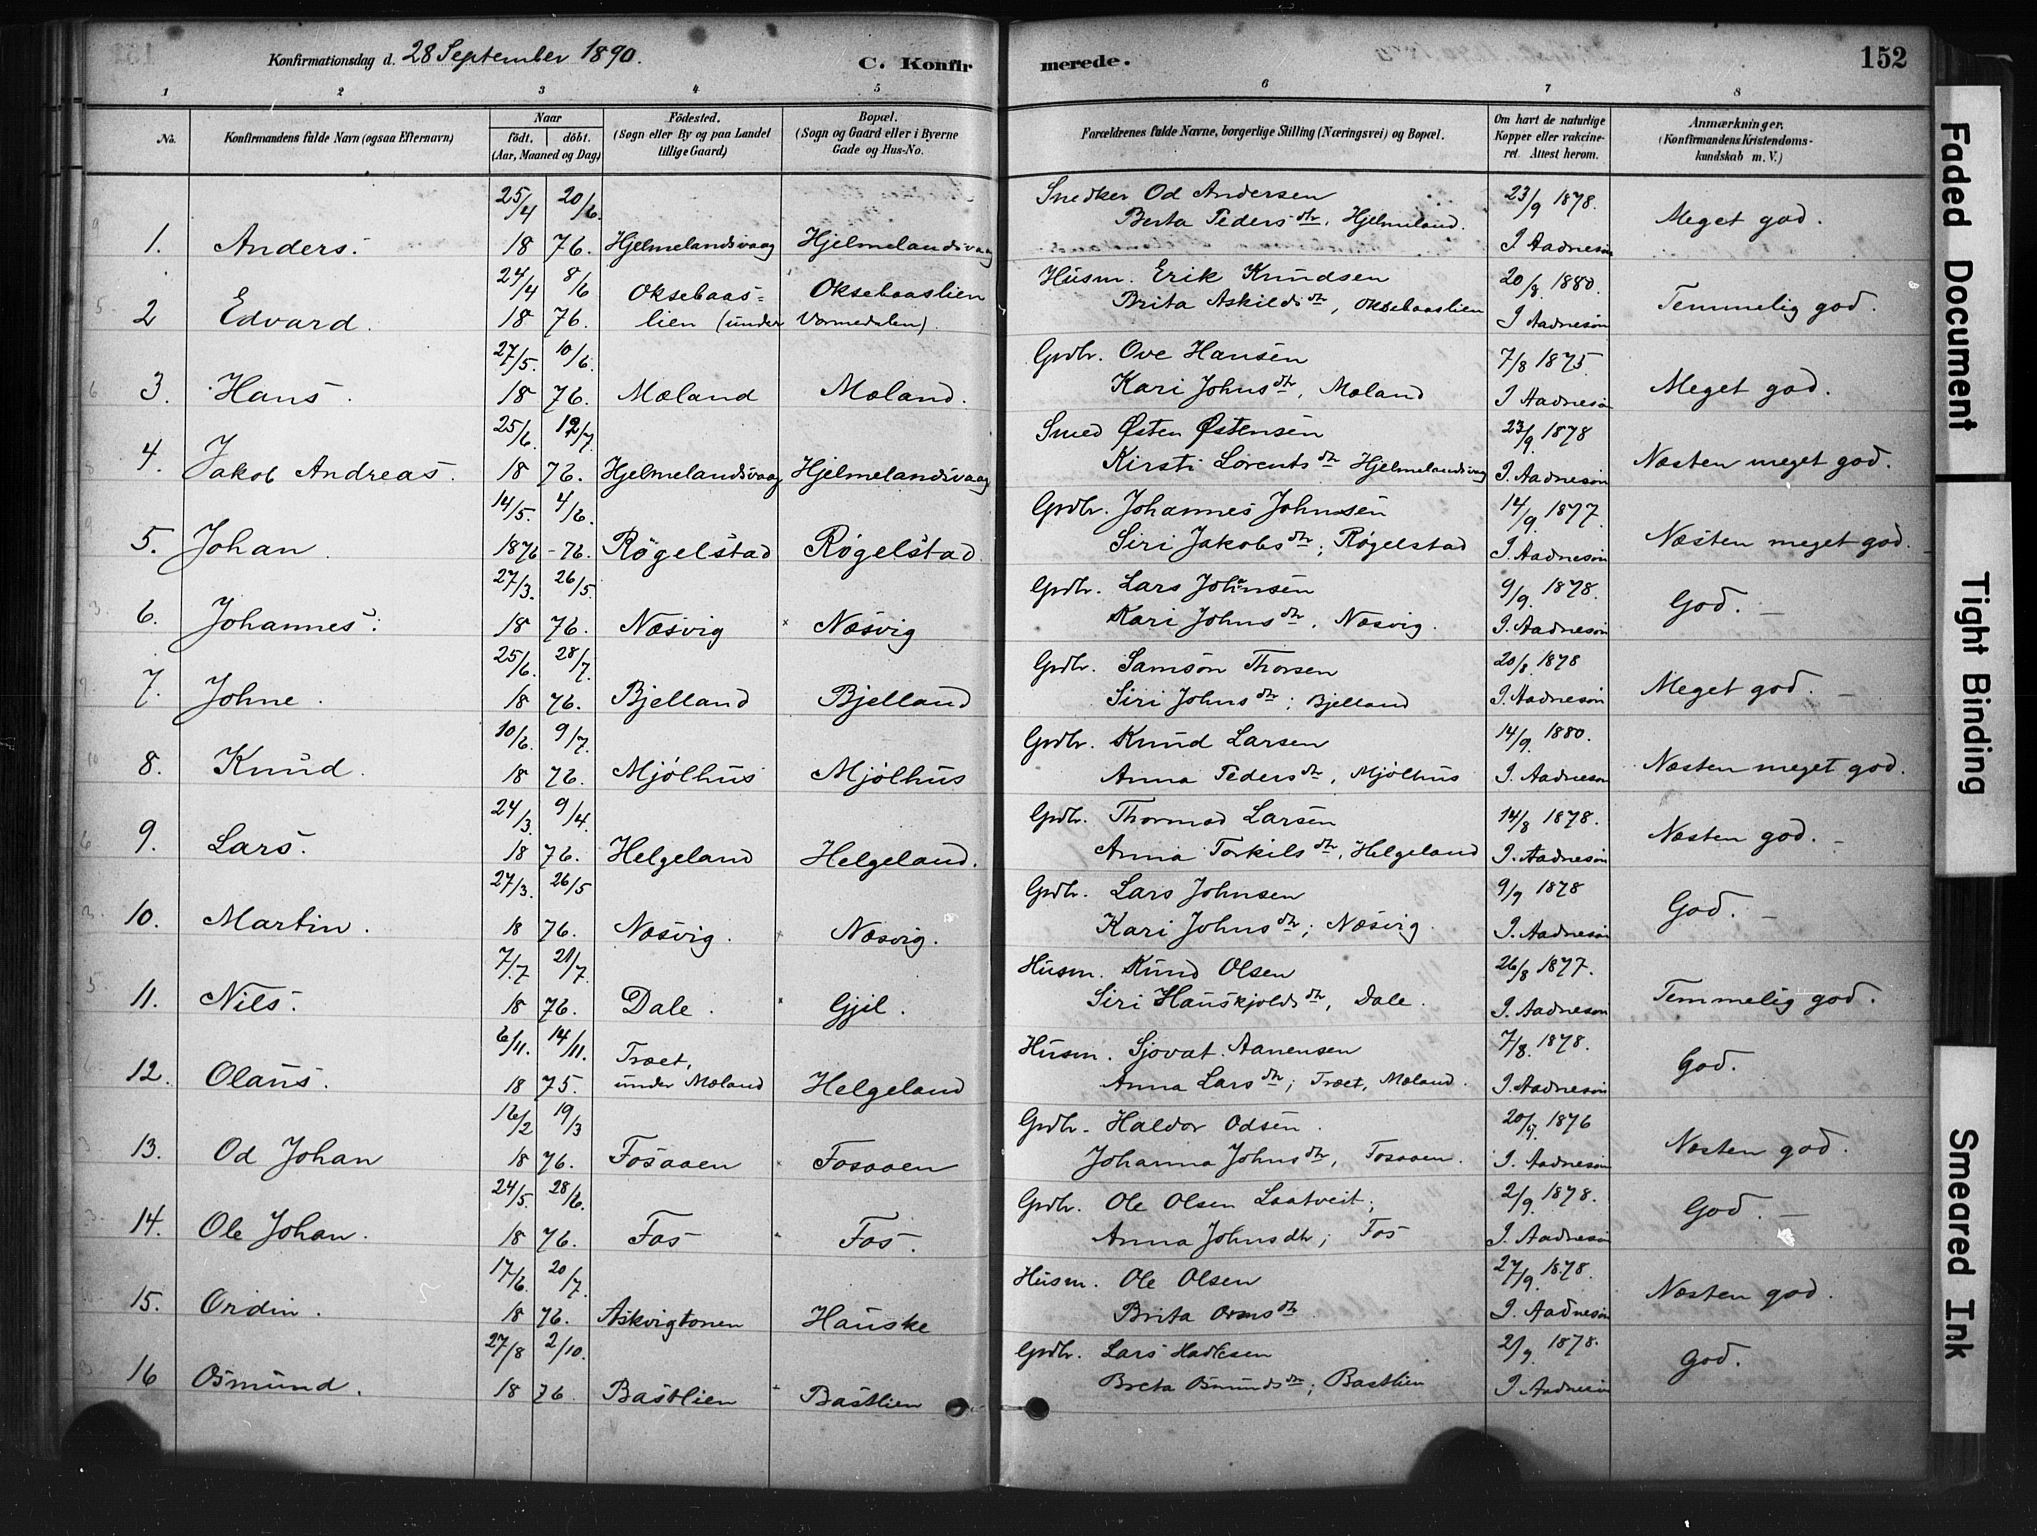 Konfirmationsdag d. 28 September 1890.
C. Konfirmerede.
152
1 2 3 4 5 6 7 8
No. Konfirmandens fulde Navn (ogsaa Efternavn) Naar født, døbt. (Aar, Maaned og Dag) Fødested. (Sogn eller By og paa Landet tillige Gaard) Bopæl. (Sogn og Gaard eller i Byerne Gade og Hus-No. Forældrenes fulde Navne, borgerlige Stilling (Næringsvei) og Bopæl. Om havt de naturlige Kopper eller vakcineret. Attest herom. Anmærkninger. (Konfirmandens Kristendomskundskab m. V.)
25/4 20/6. Snedker Od Andersen 23/9 1878.
1. Anders. 18 76. Hjelmelandsvaag Hjelmelandsvaag Berta Peders dtr, Hjelmeland. I Aadnesøn Meget god.
24/4 8/6 Oksebaas= Oksebaaslien Husm. Erik Knudsen 20/8 1880.
2 Edvard. 18 76. lien (under Vormedalen). Brita Askilds dtr, Oksebaaslien I Aadnesøn Temmelig god.
27/5. 10/6. Grdbr. Ove Hansen 7/8 1875.
3. Hans. 18 76. Mæland Mæland. Kari Johns dtr, Mæland I Aadnesøn Meget god.
25/6. 12/7. Smed Østen Østensen 23/9. 1878
4. Jakob Andreas. 18 76. Hjelmelandsvaag Hjelmelandsvaag Kirsti Lorents dtr Hjelmelandsvaag I. Aadnesøn Næsten meget god.
14/5. 4/6. Grdbr. Johannes Johnsen 14/9. 1877.
5. Johan. 1876 - 76. Røgelstad Røgelstad. Siri Jakobs dtr; Røgelstad I. Aadnesøn Næsten meget god.
27/3. 26/5. Grdbr. Lars Johnsen 9/9. 1878.
6. Johannes. 18 76. Næsvig Næsvig Kari Johns dtr, Næsvig. I. Aadnesøn God. —
25/6. 28/7. Grdbr. Samson Thorsen 20/8 1878
7. Johne. 18 76. Bjelland Bjelland Siri Johns dtr; Bjelland I. Aadnesøn Meget god. —
10/6. 9/7. Grdbr. Knud Larsen 14/9. 1880.
8. Knud. 18 76. Mjølhus Mjølhus Anna Peders dtr, Mjølhus I. Aadnesøn Næsten meget god.
24/3. 9/4. Grdbr. Thormod Larsen 14/8 1878.
9. Lars. 18 76. Helgeland Helgeland. Anna Torkils dtr, Helgeland I. Aadnesøn Næsten god. —
27/3. 26/5 Grdbr. Lars Johnsen 9/9 1878
10. Martin. 18 76. Næsvig. Næsvig. Kari Johns dtr; Næsvig. I. Aadnesøn God. —
7/7 21/7 Husm. Knud Olsen 26/8 1877.
11. Nils. 18 76. Dale. Gjil. Siri Hauskjolds dtr, Dale. I. Aadnesøn Temmelig god.
6/11. 14/11. Træet, Husm. Sjovat Aanensen 7/8. 1878.
12. Olaus. 18 75. under Mæland Helgeland Anna Lars dtr; Træet, Mæland. I. Aadnesøn God.
16/2 19/3 Grdbr. Haldor Odsen. 20/9. 1876
13. Od Johan 18 76. Fosaaen Fosaaen Johanna Johns dtr, Fosaaen. I. Aadnesøn Næsten god.
24/5. 28/6. Grdbr. Ole Olsen Laatveit; 2/9. 1878.
14. Ole Johan. 18 76. Fos Fos. Anna Johnsdtr; Fos I. Aadnesøn God. —
17/6. 20/7. Husm. Ole Olsen 27/9. 1878.
15. Ordin. 18 76. Askvigtonen Hauske Brita Orms dtr I. Aadnesøn Næsten god.
27/8 2/10. Grdbr. Lars Hadlesen 2/9. 1878.
16 Osmund. 18 76. Bastlien Bastlien Breta Osmunds dtr; Bastlien I. Aadnesøn God.
Faded Document
Tight Binding
Smeared Ink